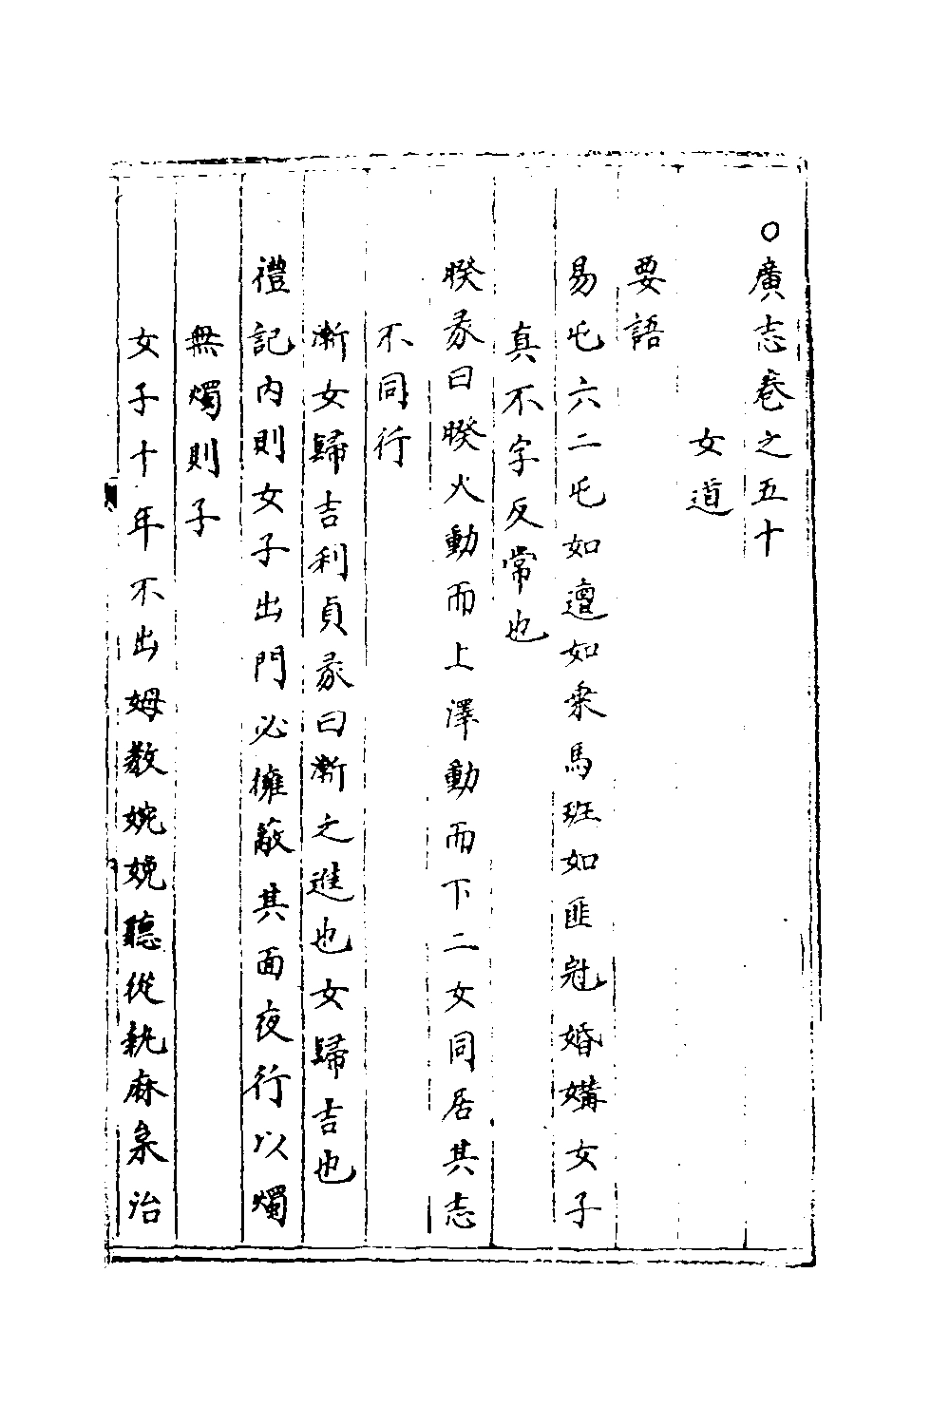 ○廣志卷之五十
女道
要語
易屯六二屯如邅如乘馬班如匪冦婚媾女子
真不字反常也
睽彖曰睽火動而上澤動而下二女同居其志
不同行
漸女歸吉利貞彖曰漸之進也女歸吉也
禮記內則女子出門必擁蔽其面夜行以燭
無燭則子
女子十年不出姆教婉娩聽從執麻枲治